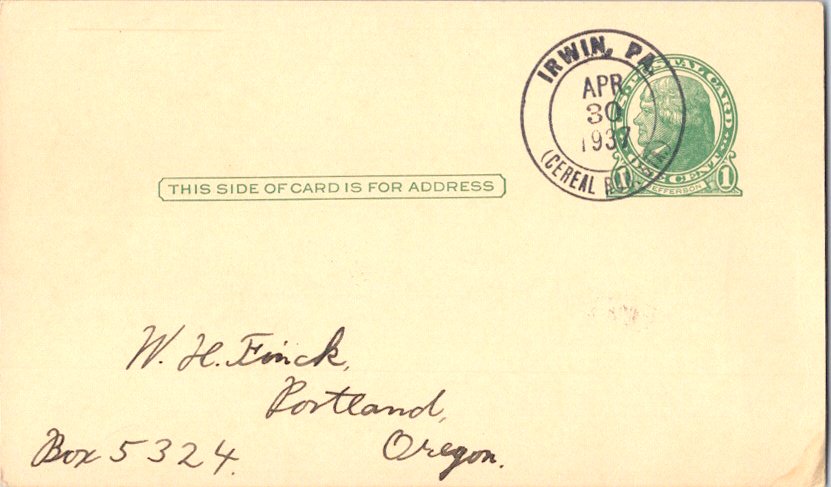 IRWIN, PA.
APR
30
1937
(CEREAL
POSTAL CARD
ONE CENT
1 JEFFERSON 1
THIS SIDE OF CARD IS FOR ADDRESS
W. H. Finck,
Portland,
Box 5324. Oregon.